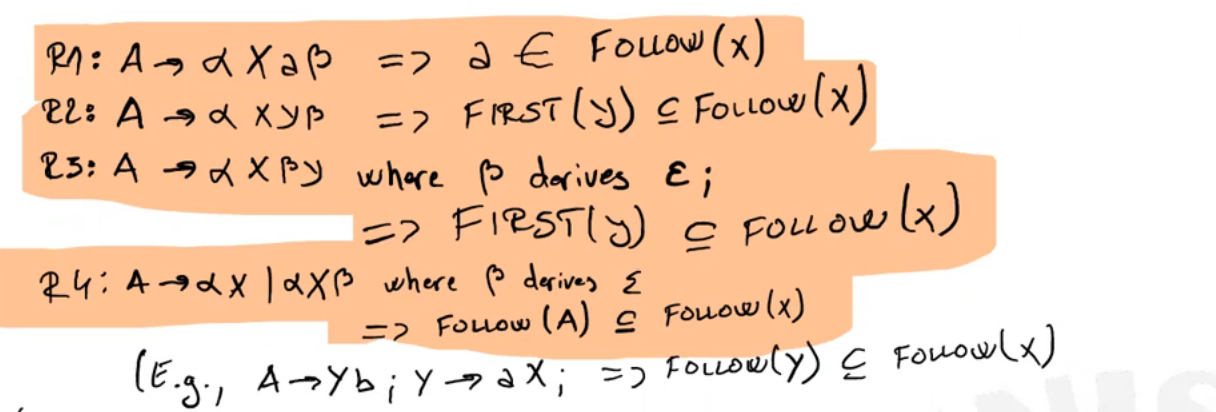 R1: A → α X a β => a ∈ FOLLOW(X)
R2: A → α X Y β => FIRST(Y) ⊆ FOLLOW(X)
R3: A → α X β Y where β derives ε;
=> FIRST(Y) ⊆ FOLLOW(X)
R4: A → α X | α X β where β derives ε
=> FOLLOW(A) ⊆ FOLLOW(X)
(E.g., A → Y b; Y → a X; => FOLLOW(Y) ⊆ FOLLOW(X)